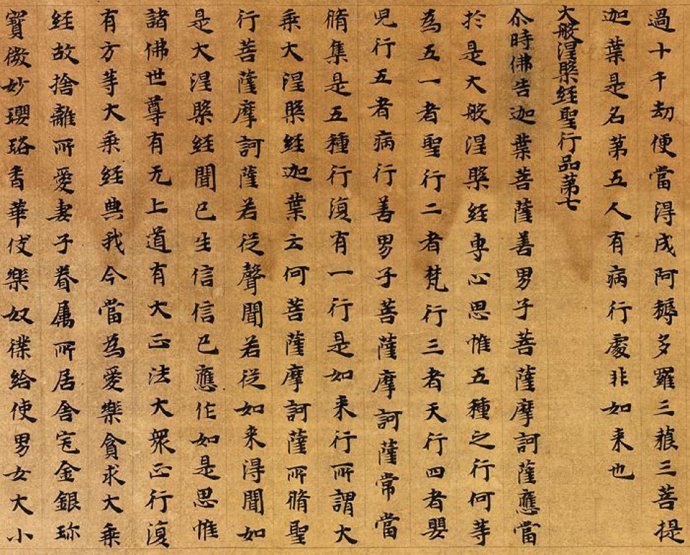 過十千劫便當得成阿耨多羅三藐三菩提
迦葉是名第五人有病行處非如来也
大般涅槃經聖行品第七
尒時佛告迦葉菩薩善男子菩薩摩訶薩應當
於是大般涅槃經専心思惟五種之行何等
為五一者聖行二者梵行三者天行四者嬰
兒行五者病行善男子菩薩摩訶薩常當
脩集是五種行復有一行是如来行所謂大
乗大涅槃經迦葉云何菩薩摩訶薩所脩聖
行菩薩摩訶薩若従聲聞若従如来得聞如
是大涅槃經聞已生信信已應作如是思惟
諸佛世尊有无上道有大正法大衆正行復
有方等大乗經典我今當為愛樂貪求大乗
經故捨離所愛妻子眷属所居舎宅金銀珎
寳微妙瓔珞香華伎樂奴僕給使男女大小